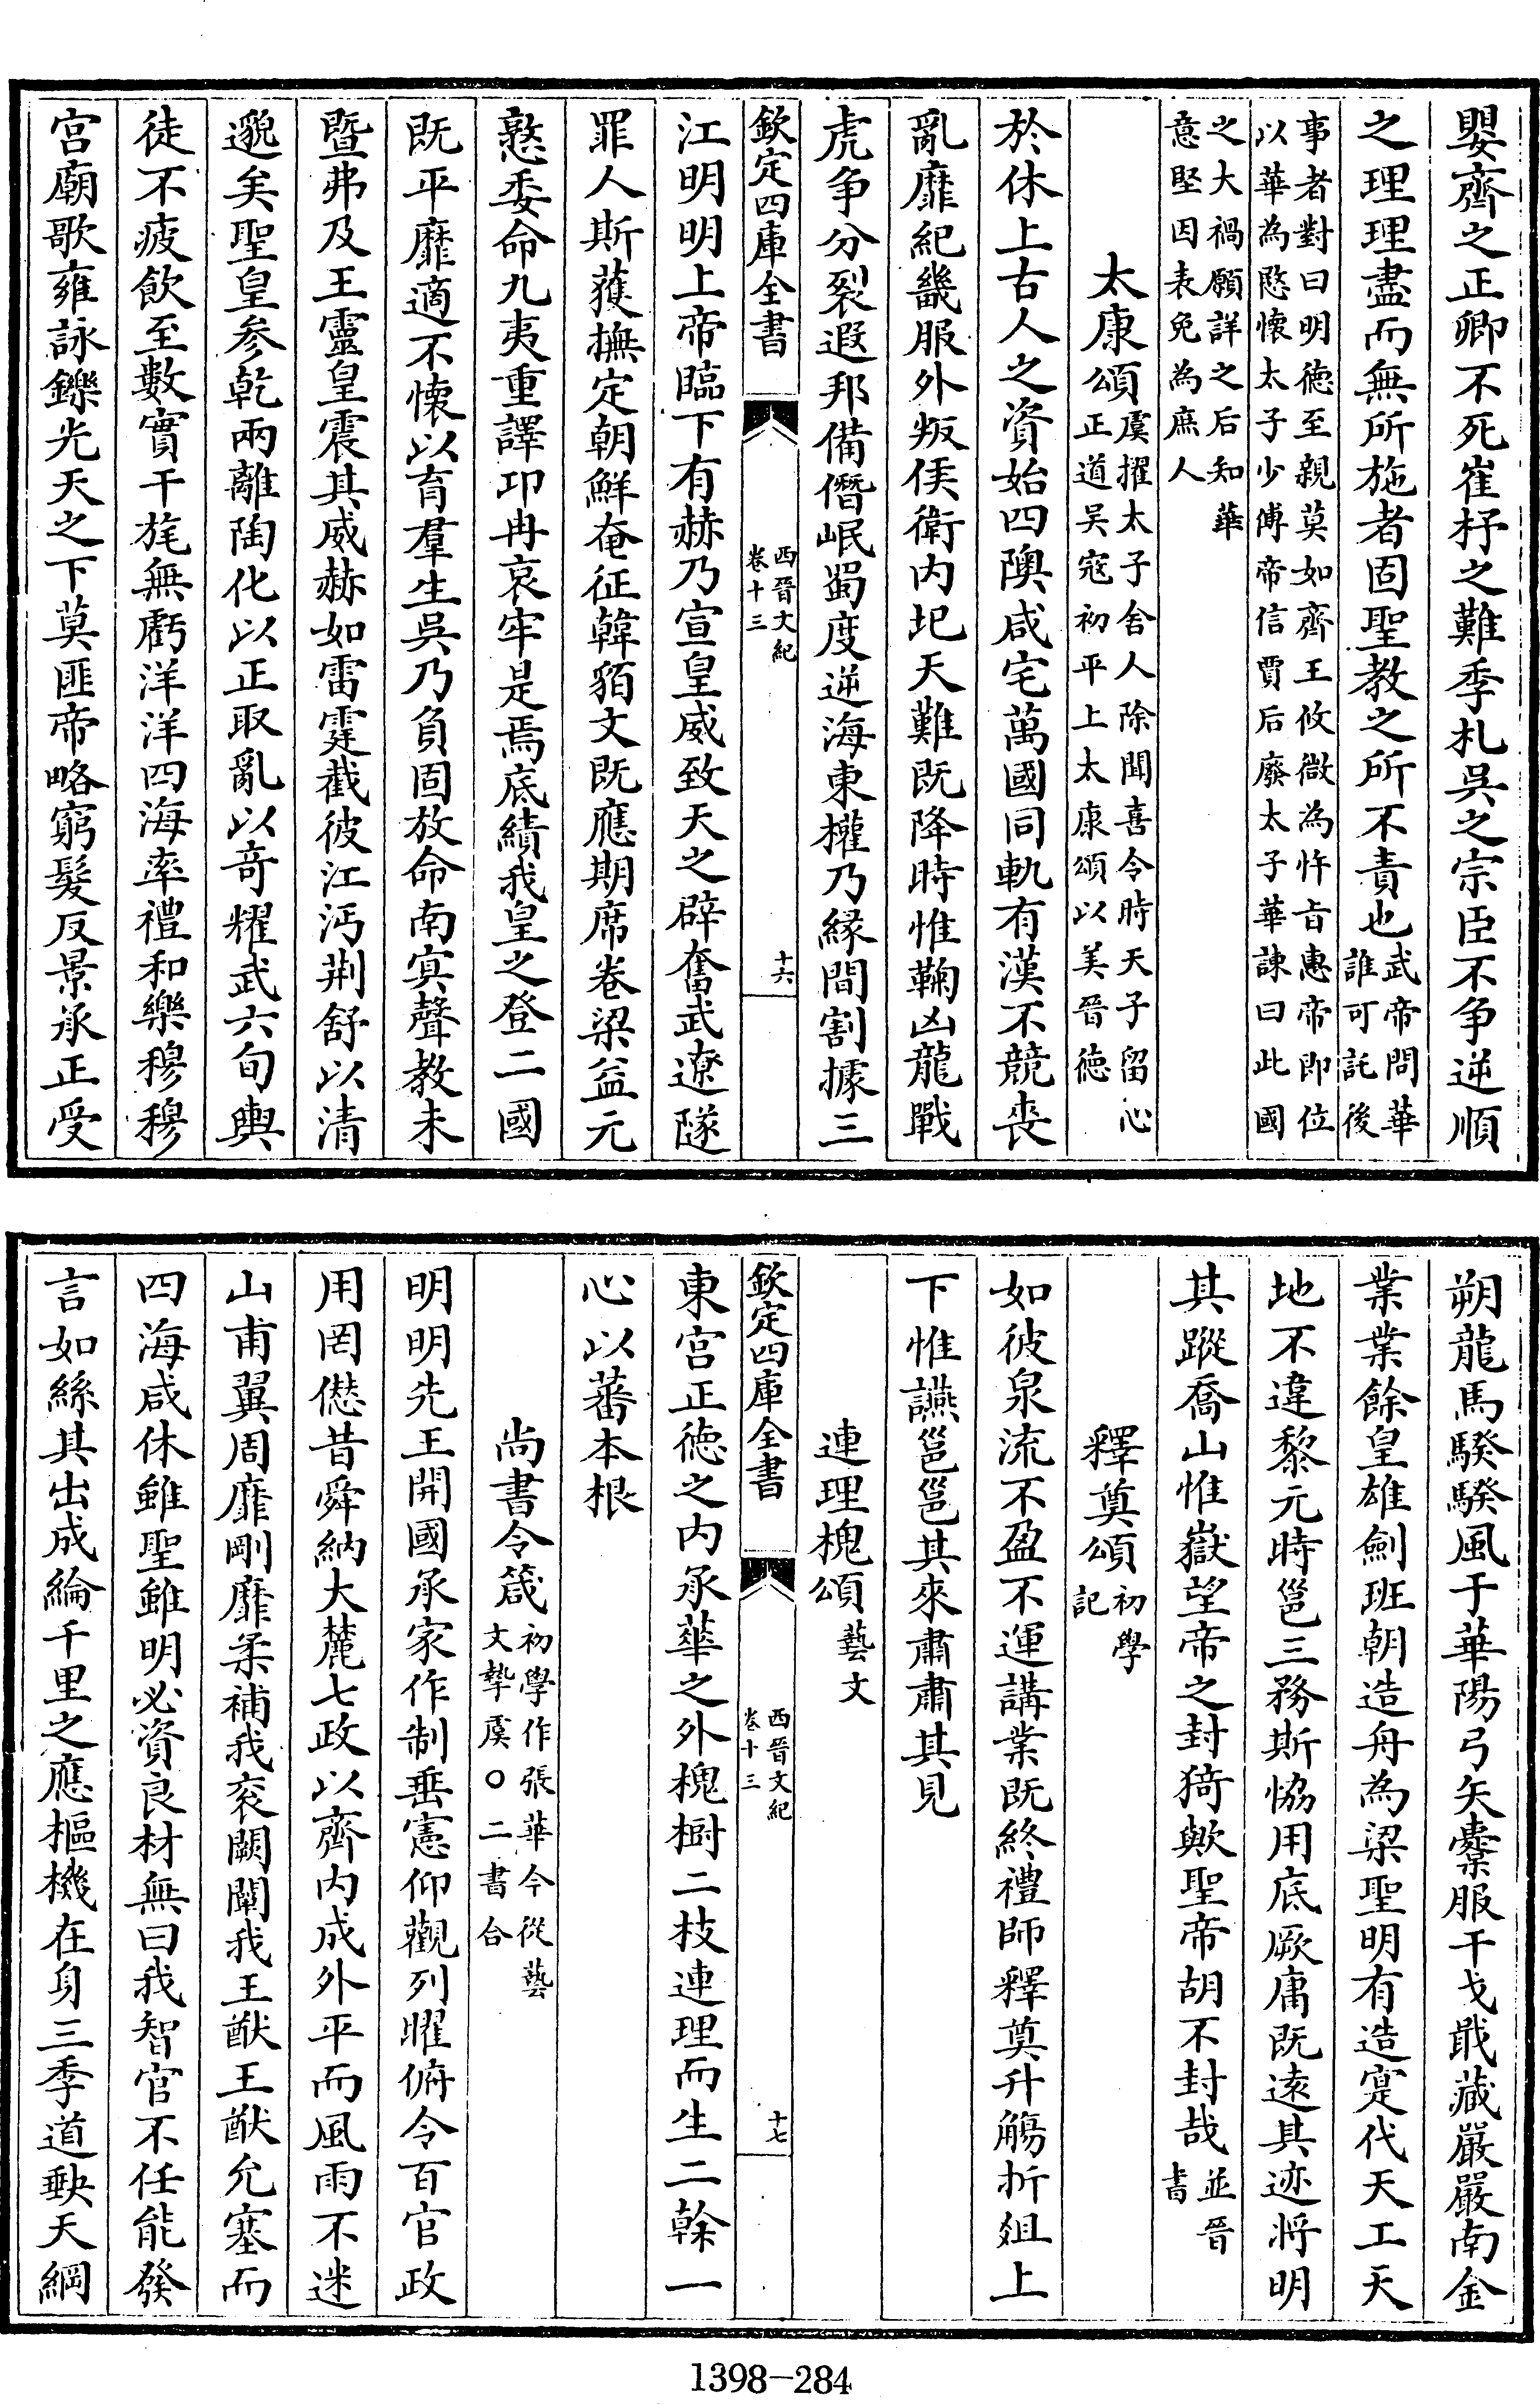 嬰齊之正卿不死崔杼之難季札吳之宗臣不争逆順
之理理盡而無所施者固聖教之所不責也武帝問華誰可託後
事者對曰明徳至親莫如齊王攸微為忤㫖惠帝即位以華為愍懐太子少傅帝信賈后廢太子華諫曰此國
之大禍願詳之后知華意堅因表免為庶人
太康頌虞擢太子舍人除聞喜令時天子留心正道吳寇初平上太康頌以美晉徳
於休上古人之資始四隩咸宅萬國同軌有漢不競喪
亂靡紀畿服外叛侯衛内圯天難既降時惟鞠凶龍戰
虎争分裂遐邦備僭岷蜀度逆海東權乃縁間割據三
欽定四庫全書
西晉文紀
卷十三
十六
江明明上帝臨下有赫乃宣皇威致天之辟奮武遼隧
罪人斯獲撫定朝鮮奄征韓貊文既應期席卷梁益元
憝委命九夷重譯卭冉哀牢是焉底績我皇之登二國
既平靡適不懐以育羣生吳乃負固放命南冥聲教未
暨弗及王靈皇震其威赫如雷霆截彼江沔荆舒以清
邈矣聖皇参乾兩離陶化以正取亂以竒耀武六旬輿
徒不疲飲至數實干旄無虧洋洋四海率禮和樂穆穆
宫廟歌雍詠鑠光天之下莫匪帝略窮髮反景承正受
朔龍馬騤騤風于華陽弓矢櫜服干戈戢藏嚴嚴南金
業業餘皇雄劍班朝造舟為梁聖明有造寔代天工天
地不違黎元時邕三務斯恊用底厥庸既逺其迹将明
其蹤喬山惟嶽望帝之封猗歟聖帝胡不封哉並晉書
釋奠頌初學記
如彼泉流不盈不運講業既終禮師釋奠升觴折俎上
下惟讌邕邕其來肅肅其見
連理槐頌藝文
欽定四庫全書
西晉文紀
卷十三
十七
東宫正徳之内承華之外槐樹二枝連理而生二幹一
心以蕃本根
尚書令箴初學作張華今從藝文摯虞○二書合
明明先王開國承家作制垂憲仰觀列曜俯令百官政
用罔愆昔舜納大麓七政以齊内成外平而風雨不迷
山甫翼周靡剛靡柔補我衮闕闡我王猷王猷允塞而
四海咸休雖聖雖明必資良材無曰我智官不任能發
言如絲其出成綸千里之應樞機在身三季道缺天綱
1398-284